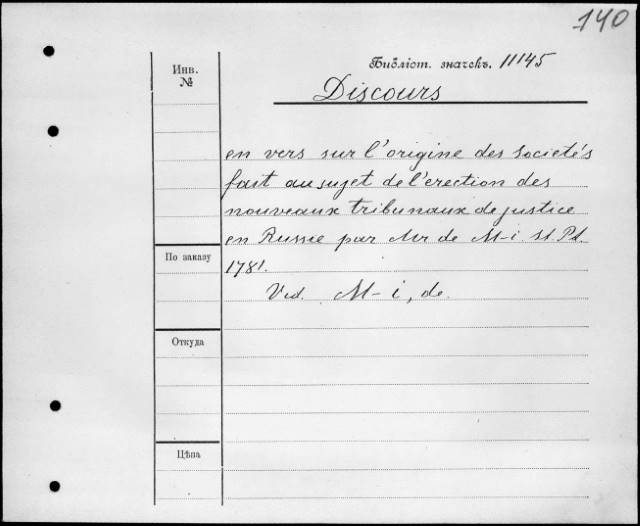 140
Инв. №
Бібліот. значекъ. 11145
Discours
en vers sur l'origine des societés
fait au sujet de l'erection des
nouveaux tribunaux de justice
en Russie par Mr de M-i. St. Pt.
1781.
Vid. M-i, de.
По заказу
Откуда
Цѣна